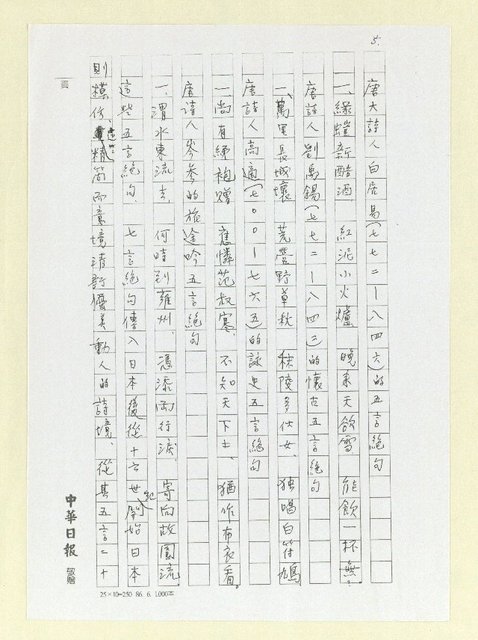 5.
唐大詩人白居易(七七二—八四六)的五言絕句
一、綠螘新醅酒 紅泥小火爐 晚來天欲雪 能飲一杯無。
唐詩人劉禹錫(七七二—八四二)的懷古五言絕句
一、萬里長城壞 荒營野草秋 秣陵多仕女 独唱白符鳩
唐詩人高適(七〇〇—七六五)的詠史五言絕句
一、尚有綈袍贈 應憐范叔寒 不知天下士 猶作布衣看。
唐詩人岑參的旅途吟五言絕句
一、渭水東流去 何時到雍州 憑添兩行淚 寄向故園流
這些五言絕句 七言絕句傳入日本後從十六世紀開始日本
則模仿這些精簡而意境清韵優美動人的詩境、從其五言二十
中華日報 敬贈
25×10=250 86. 6. 1,000本